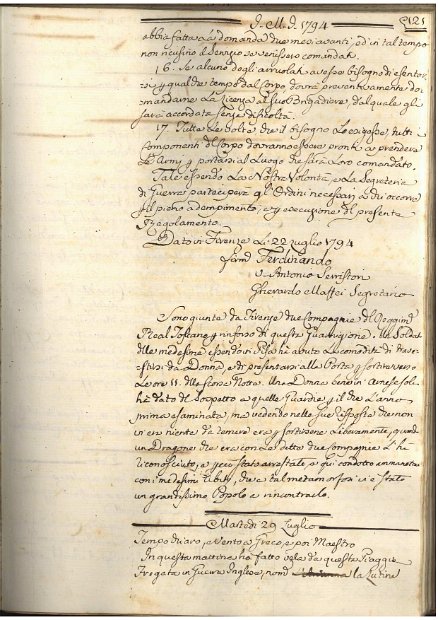 I. M. I. 1794
121
abbia fattava a domanda due mesi avanti, ed in tal tempo
non ricusino il servizio se venissero comandati.
16. Se alcuno degli arruolati avesse bisogno di esentar
si p qualche tempo dal Corpo, dovrà preventivamente do
mandarne La Licenza al suo Brigadiere, dal quale gli
sarà accordata senza difficoltà.
17. Tutte Le volte che il bisogno Lo esigesse, tutti
Componenti il Corpo dovranno essere pronti a prendere
Le Armi, e portarsi al Luogo che sarà Loro comandato.
Tale essendo La Nostra Volontà, La Segreteria
di Guerra parteciperà gli Ordini necessari a chi occorre
pil pieno adempimento, ed esecuzione di presente
Regolamento.
Dato in Firenze Li 22 Luglio 1794
firmo Ferdinando
v. Antonio Serristori
Gherardo Maffei Segretario
Sono giunte da Firenze due Compagnie di
Real Toscano p rinforzo di questa Guarnigione. Un Soldato
delle medesime essendo in Pisa ha avuto La comodità di trave-
stirsi da Donna, e di presentarsi alla Porta p sortire verso
Le ore 11. della scorsa Notte. Una Donna
ha dato del sospetto a quelle Guardie, p il che L'anno
prima esaminata, ma vedendo nelle sue risposte che non
vi era niente da temere era p sortirsene Liberamente, quando
un Dragone che era con Le dette due Compagnie L'ha
riconosciuto, e però stato arrestato, e qui condotto
con i medesimi abiti, che a tal metamorfosi vi è stato
un grandissimo Popolo a rincontrarlo.
Martedì 29 Luglio
Tempo chiaro, e Vento a Greco, e poi Maestro
In questa mattina ha fatto vela da questa Spiaggia
Fregata in Guerra Inglese, nomta la Lutine